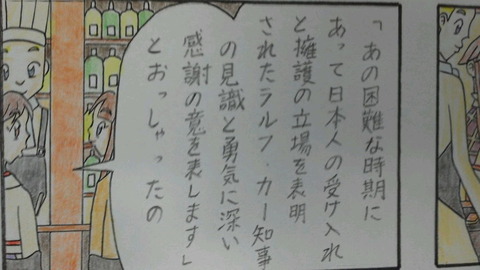 「あの困難な時期に
あって日本人の受け入れ
と擁護の立場を表明
されたラルフ・カー知事
の見識と勇気に深い
感謝の意を表します」
とおっしゃったの